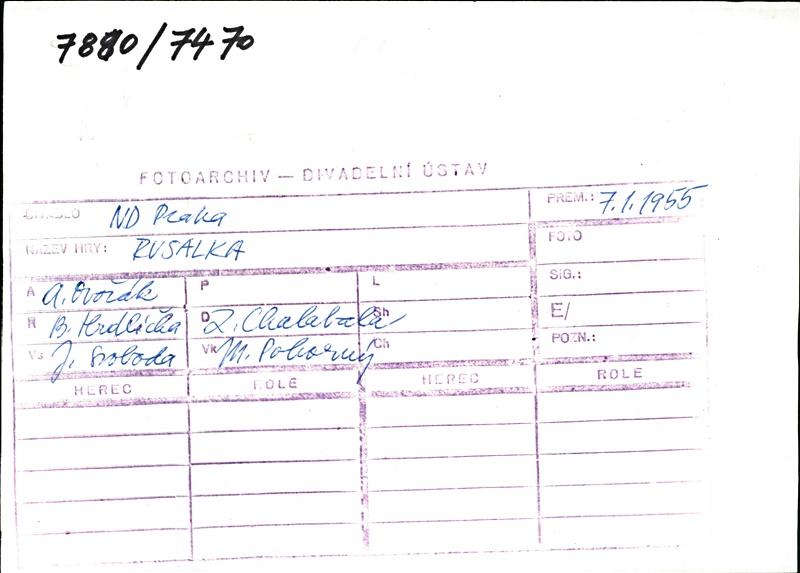 7880/7470
FOTOARCHIV — DIVADELNÍ ÚSTAV
DIVADLO ND Praha PREM.: 7.1.1955
NÁZEV HRY: RUSALKA FOTO
SIG.:
A A. Dvořák P L
E/
R B. Hrdlička D Z. Chalabala Sh
POZN.:
Vs J. Svoboda Vk M. Pokorný Ch
HEREC ROLE HEREC ROLE